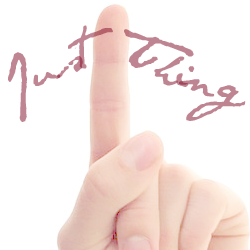 Just Thing